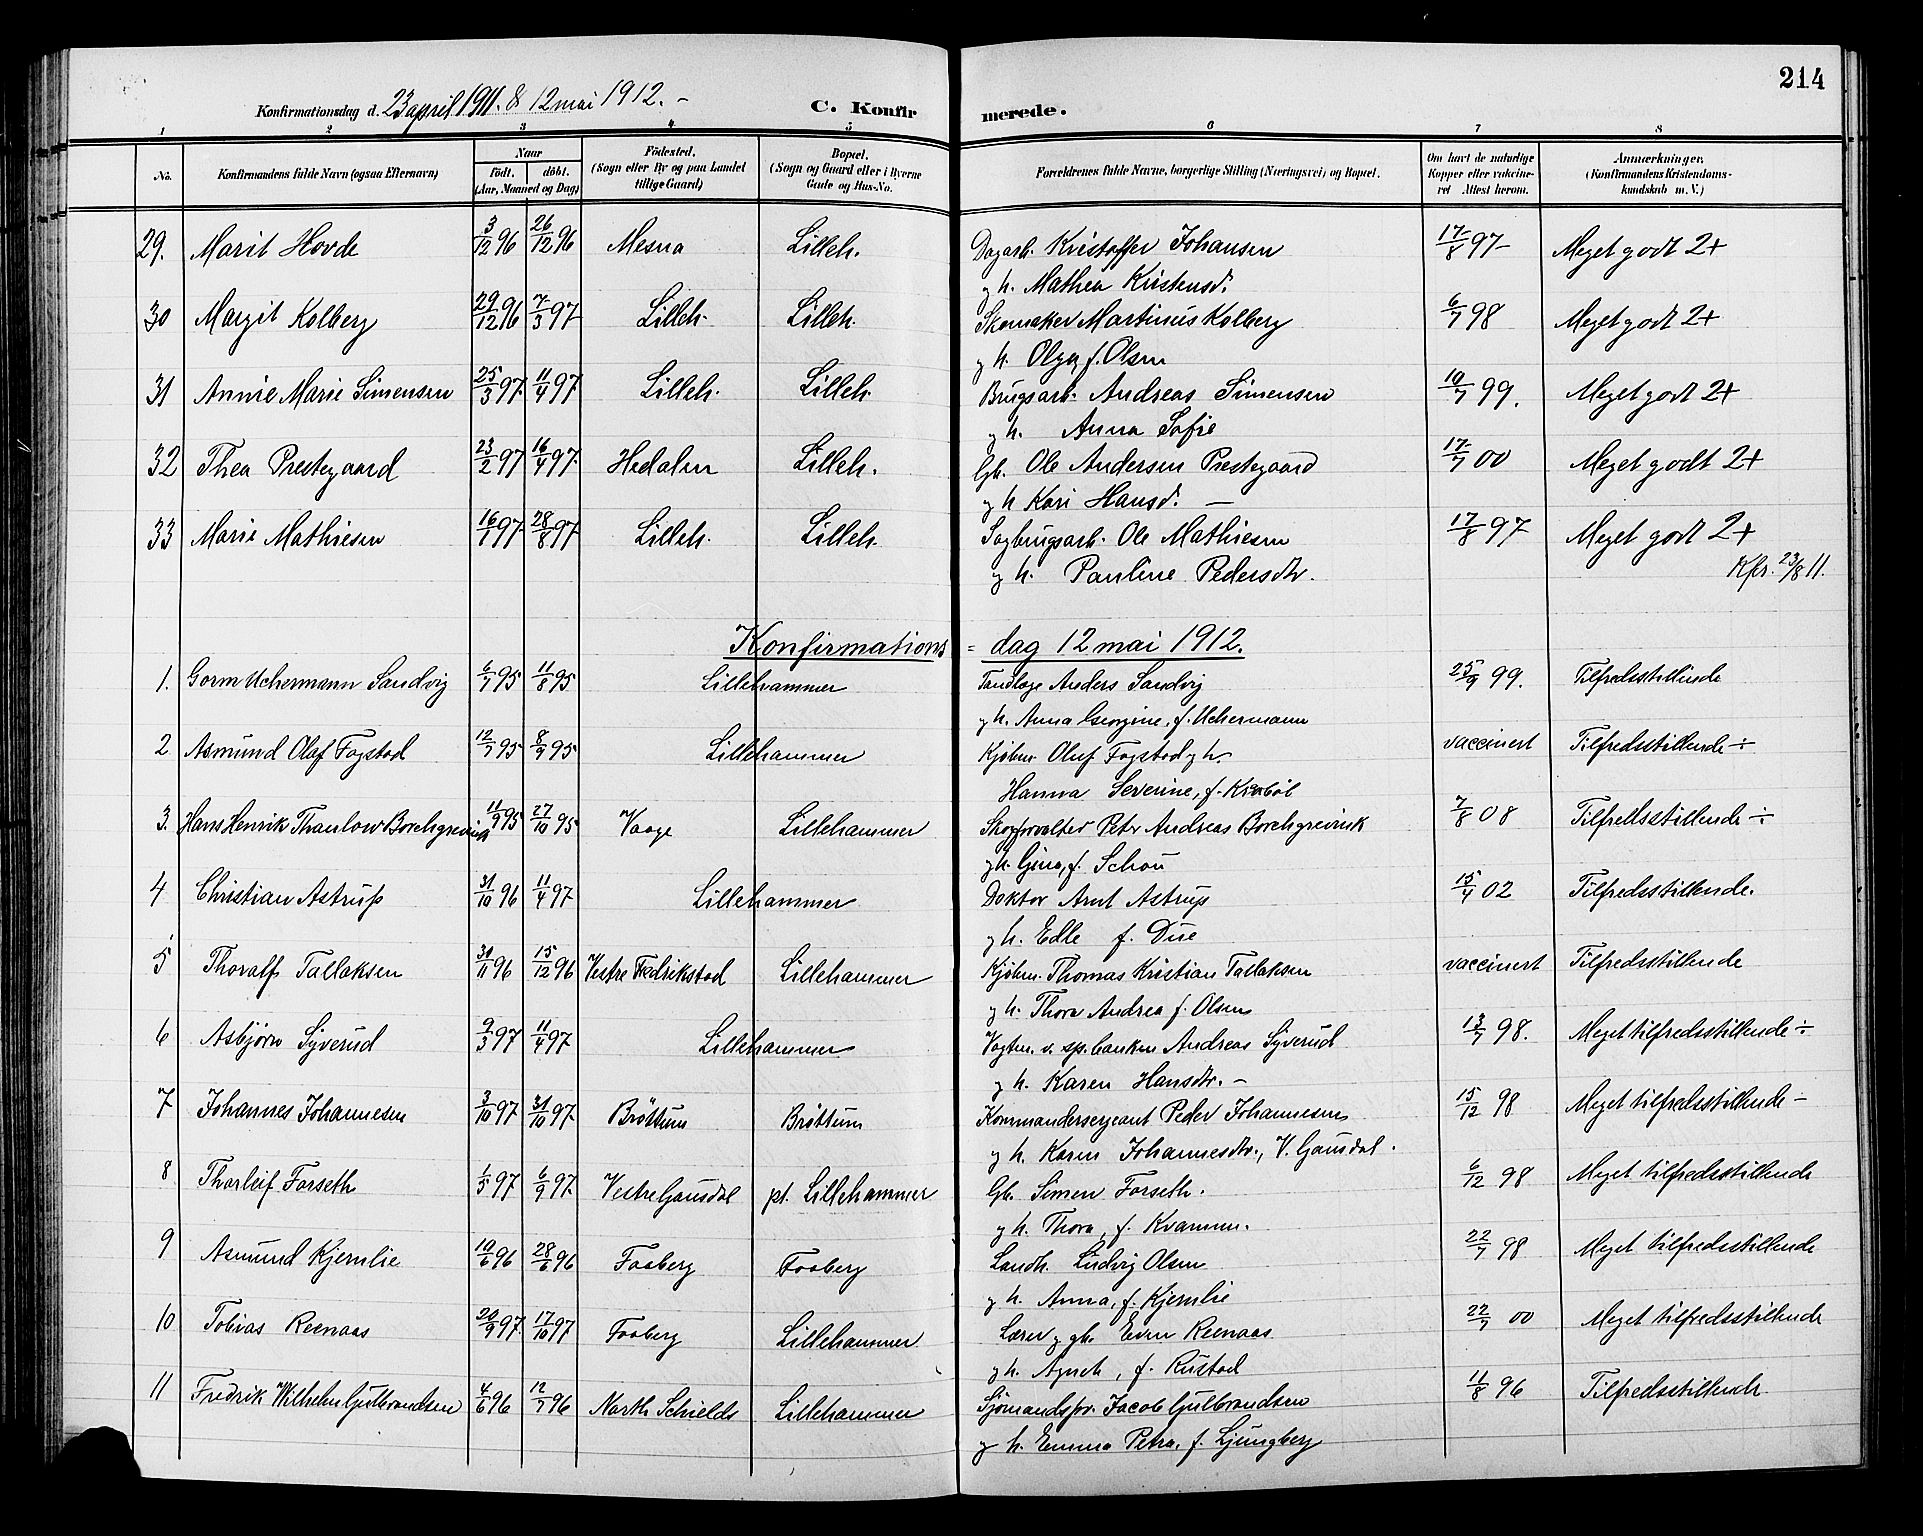 214
Konfirmationsdag d. 23 april 1911. & 12 mai 1912. -
C. Konfirmerede.
1 2 3 4 5 6 7 8
No. Konfirmandens fulde Navn (ogsaa Efternavn) Naar født. døbt. (Aar, Maaned og Dag) Fødested. (Sogn eller By og paa Landet tillige Gaard) Bopæl. (Sogn og Gaard eller i Byerne Gade og Hus-No. Forældrenes fulde Navne, borgerlige Stilling (Næringsvei) og Bopæl. Om havt de naturlige Kopper eller vakcineret Attest herom. Anmærkninger. (Konfirmandens Kristendomskundskab m. V.)
29. Marit Hovde 3/12 96 26/12 96 Mesna Lilleh. Dagarb. Kristoffer Johansen 17/8 97 Meget godt 2+
og h. Mathea Kristensd.
30 Margit Kolberg 29/12 96 7/3 97 Lilleh. Lilleh. Skomaker Martinus Kolberg 6/7 98 Meget godt 2+
og h. Olga f. Olsen
31 Annie Marie Simensen 25/3 97 11/4 97 Lilleh. Lilleh. Brugsarb. Andreas Simensen 10/7 99. Meget godt 2+
og h. Anna Sofie
32 Thea Prestegaard 23/2 97 16/4 97 Hedalen Lilleh. Gb. Ole Andersen Prestegaard 17/7 00 Meget godt 2+
og h Kari Hansd. -
33 Marie Mathiesen 16/7 97 28/8 97 Lilleh. Lilleh. Sagbrugsarb. Ole Mathiesen 17/8 97 Meget godt 2+
og h. Pauline Pedersdtr. Kfr. 23/8 11.
Konfirmations = dag 12 mai 1912.
1. Gorm Uchermann Sandvig 6/7 95 11/8 95 Lillehammer Tandlæge Anders Sandvig 25/9 99. Tilfredsstillende
og h. Anna Georgine, f. Uchermann
2 Asmund Olaf Fogstad 12/7 95 8/9 95 Lillehammer Kjøbm. Oluf Fogstad og h. vaccinert Tilfredsstillende ÷
Hanna Severine, f.
3. Hans Henrik Thaulow Borchgrevink 11/9 95 27/10 95 Vaage Lillehammer Skogforvalter Petr Andreas Borchgrevink 7/8 08 Tilfredsstillende ÷
og h. Gina, f. Schou
4 Christian Astrup 31/10 96 11/4 97 Lillehammer Doktor Arnt Astrup 15/4 02 Tilfredsstillende.
og h. Edle f. Due
5 Thoralf Tallaksen 30/11 96 15/12 96 Vestre Fredrikstad Lillehammer Kjøbm. Thomas Kristian Tallaksen vaccinert Tilfredsstillende
og h. Thora Andrea f. Olsen
6 Asbjørn Syverud 9/3 97 11/4 97 Lillehammer Vogtm. v. sp. banken Andreas Syverud 13/7 98. Meget tilfredsstillende ÷
og h. Karen Hansdtr. -
7 Johannes Johannesen 3/10 97 31/10 97 Brøttum Brøttum Kommandersergeant Peder Johannesen 15/12 98 Meget tilfredsstillende -
og h. Karen Johannesdtr., V. Gausdal.
8 Thorleif Forseth 1/5 97 6/9 97 Vestre Gausdal pt. Lillehammer Gb. Simen Forseth. 6/12 98 Meget tilfredsstillende
og h. Thora, f. Kvamm.
9 Asmund Kjernlie 10/6 96 28/6 96 Faaberg Faaberg Landh. Ludvig Olsen 22/7 98 Meget tilfredsstillende
og h. Anna, f. Kjernlie
10 Tobias Reenaas 20/9 97 17/10 97 Faaberg Lillehammer Lærer og gb. Even Reenaas 22/7 00 Meget tilfredsstillende
og h. Agneth, f. Rustad
11 Fredrik Wilhelm Gulbrandsen 4/6 96 12/7 96 North Schields Lillehammer Sjømandspr. Jacob Gulbrandsen 11/8 96 Tilfredsstillende
og h. Emma Petra, f. Ljungberg